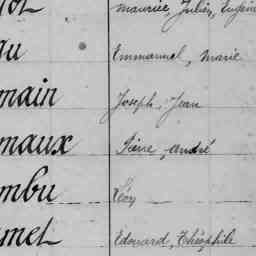 maurice, Julien, Eugène
Emmanuel, Marie
main Joseph, Jean
maux Pierre, André
mbu Léon
met Edouard, Théophile